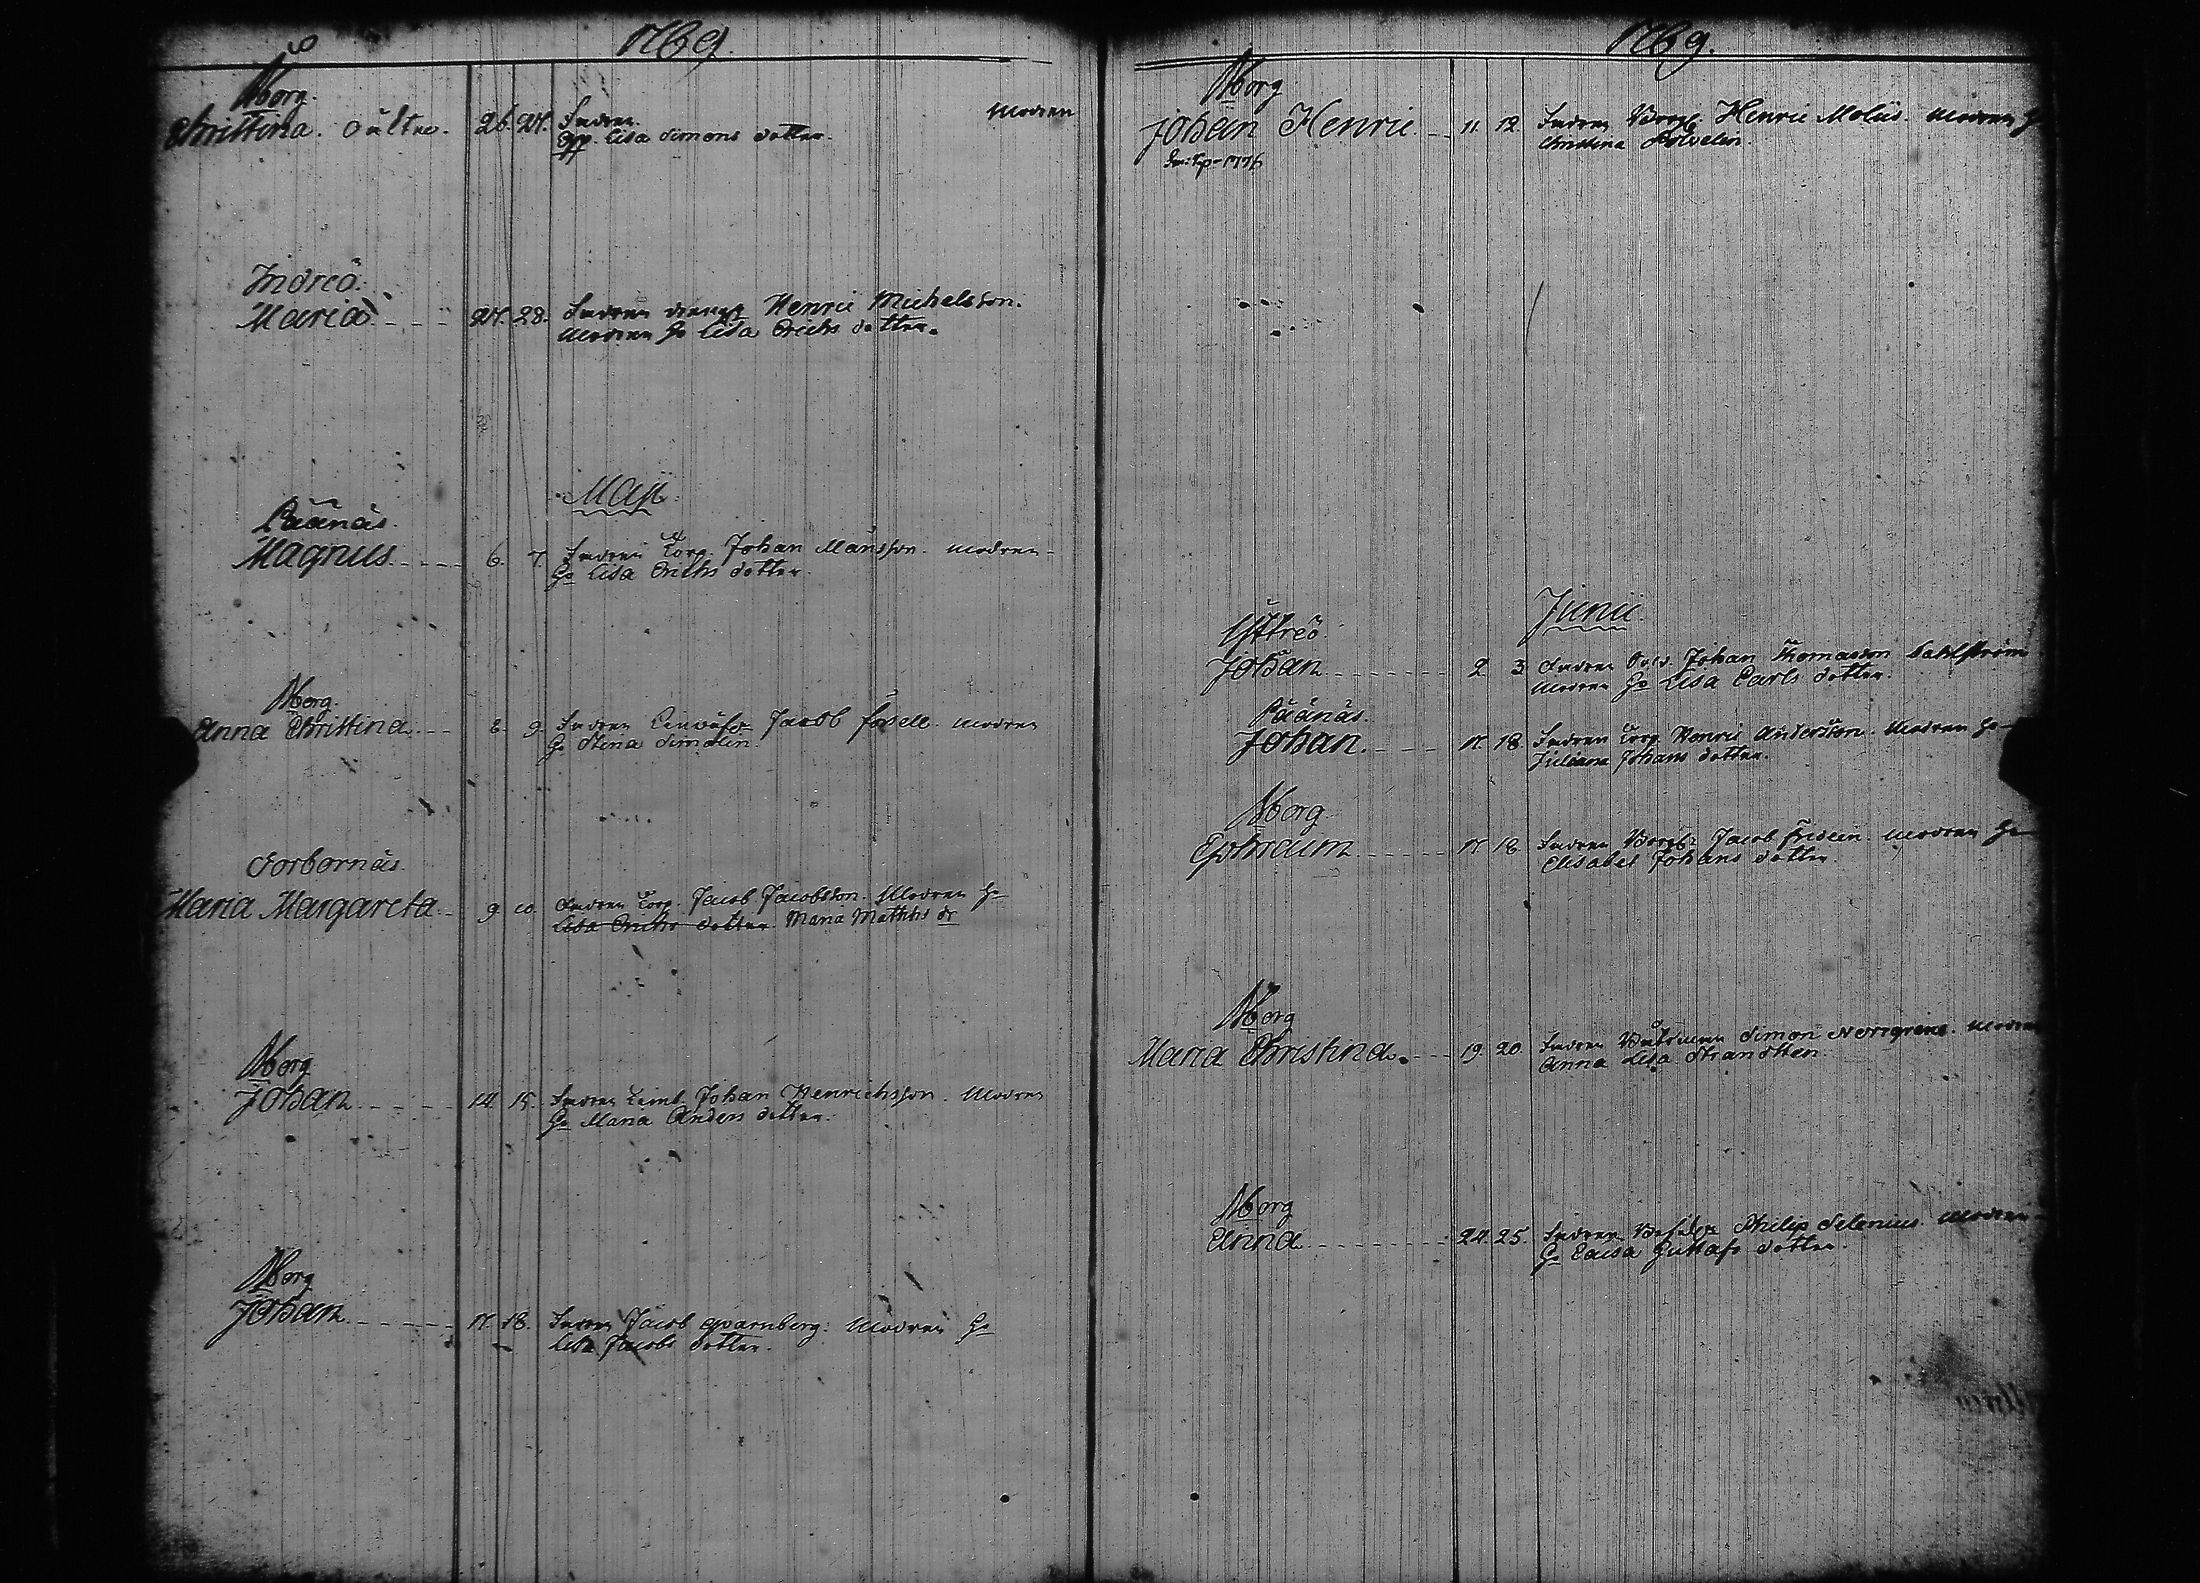 1769.
Nborg.
Christina. oäkta. 26. 27. Fadren. Modren
Lisa Simons dotter.
Indreö.
Maria 27. 28. Fadren drengn Henric Michelsson.
Modren Ho Lisa Erichs dotter.
Maji
Påånäs.
Magnus 6. 7. Fadren Torp. Johan Månsson. Modren
Ho Lisa Erichs dotter.
Nborg.
Anna Christina 8. 9. Fadren Jacob fosell. Modren
Ho Stina Simolin.
Sorbornäs.
Maria Margareta 9. 10. Fadren Torp. Jacob Jacobsson. Modren Ho
Lisa Erichs dotter Maria Matths dr
Nborg
Johan 14. 15. Fadren Timb. Johan Henrichsson. Modren
Ho Maria Anders dotter.
Nborg
Johan 17. 18. Fadren Jacob qvarnberg. Modren Ho
Lisa Jacobs dotter.
1769.
Nborg
Johan Henric 11. 12. Fadren Henric Moliis. Modren Ho
1776 Christina
Junii
Ytterö.
Johan 2 3 Fadren Johan Thomasson Dahlström
Modren Ho Lisa Carls dotter.
Påånäs.
Johan 17. 18. Fadren Torp. Henric Andersson. Modren Ho
Juliana Johans dotter.
Nborg
Ephraim 17. 18. Fadren Jacob Modren Ho
Elisabet Johans dotter
Nborg
Maria Christina 19. 20. Fadren Simon Norrgrens. Modren
Anna Lisa Strandsten.
Nborg
Anna 24. 25. Fadren Philip Selenius. Modren
Ho Caisa Gustafs dotter.